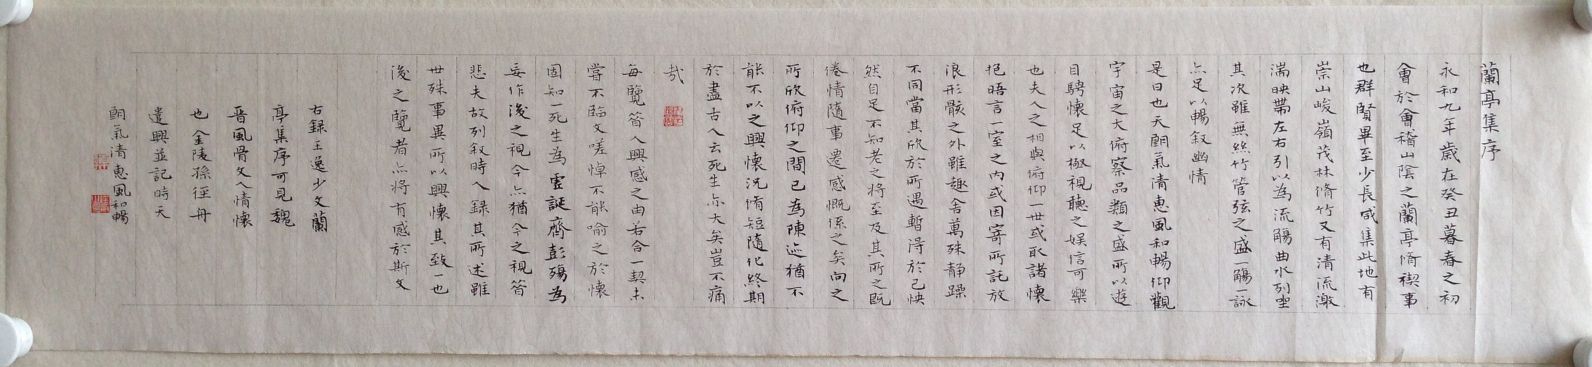 蘭亭集序
永和九年歲在癸丑暮春之初
會於會稽山陰之蘭亭脩禊事
也群賢畢至少長咸集此地有
崇山峻嶺茂林脩竹又有清流激
湍映帶左右引以為流觴曲水列坐
其次雖無絲竹管弦之盛一觴一詠
亦足以暢敘幽情
是日也天朗氣清惠風和暢仰觀
宇宙之大俯察品類之盛所以遊
目騁懷足以極視聽之娛信可樂
也夫人之相與俯仰一世或取諸懷
抱晤言一室之內或因寄所託放
浪形骸之外雖趣舍萬殊静躁
不同當其欣於所遇暫得於己怏
然自足不知老之將至及其所之既
倦情隨事遷感慨係之矣向之
所欣俯仰之間已為陳迹猶不
能不以之興懷況脩短隨化終期
於盡古人云死生亦大矣豈不痛
哉
每覽昔人興感之由若合一契未
嘗不臨文嗟悼不能喻之於懷
固知一死生為虛誕齊彭殤為
妄作後之視今亦猶今之視昔
悲夫故列敘時人錄其所述雖
世殊事異所以興懷其致一也
後之覽者亦將有感於斯文
右録王逸少文蘭
亭集序可見魏
晉風骨文人情懷
也金陵孫徑舟
遣興並記時天
朗氣清惠風和暢